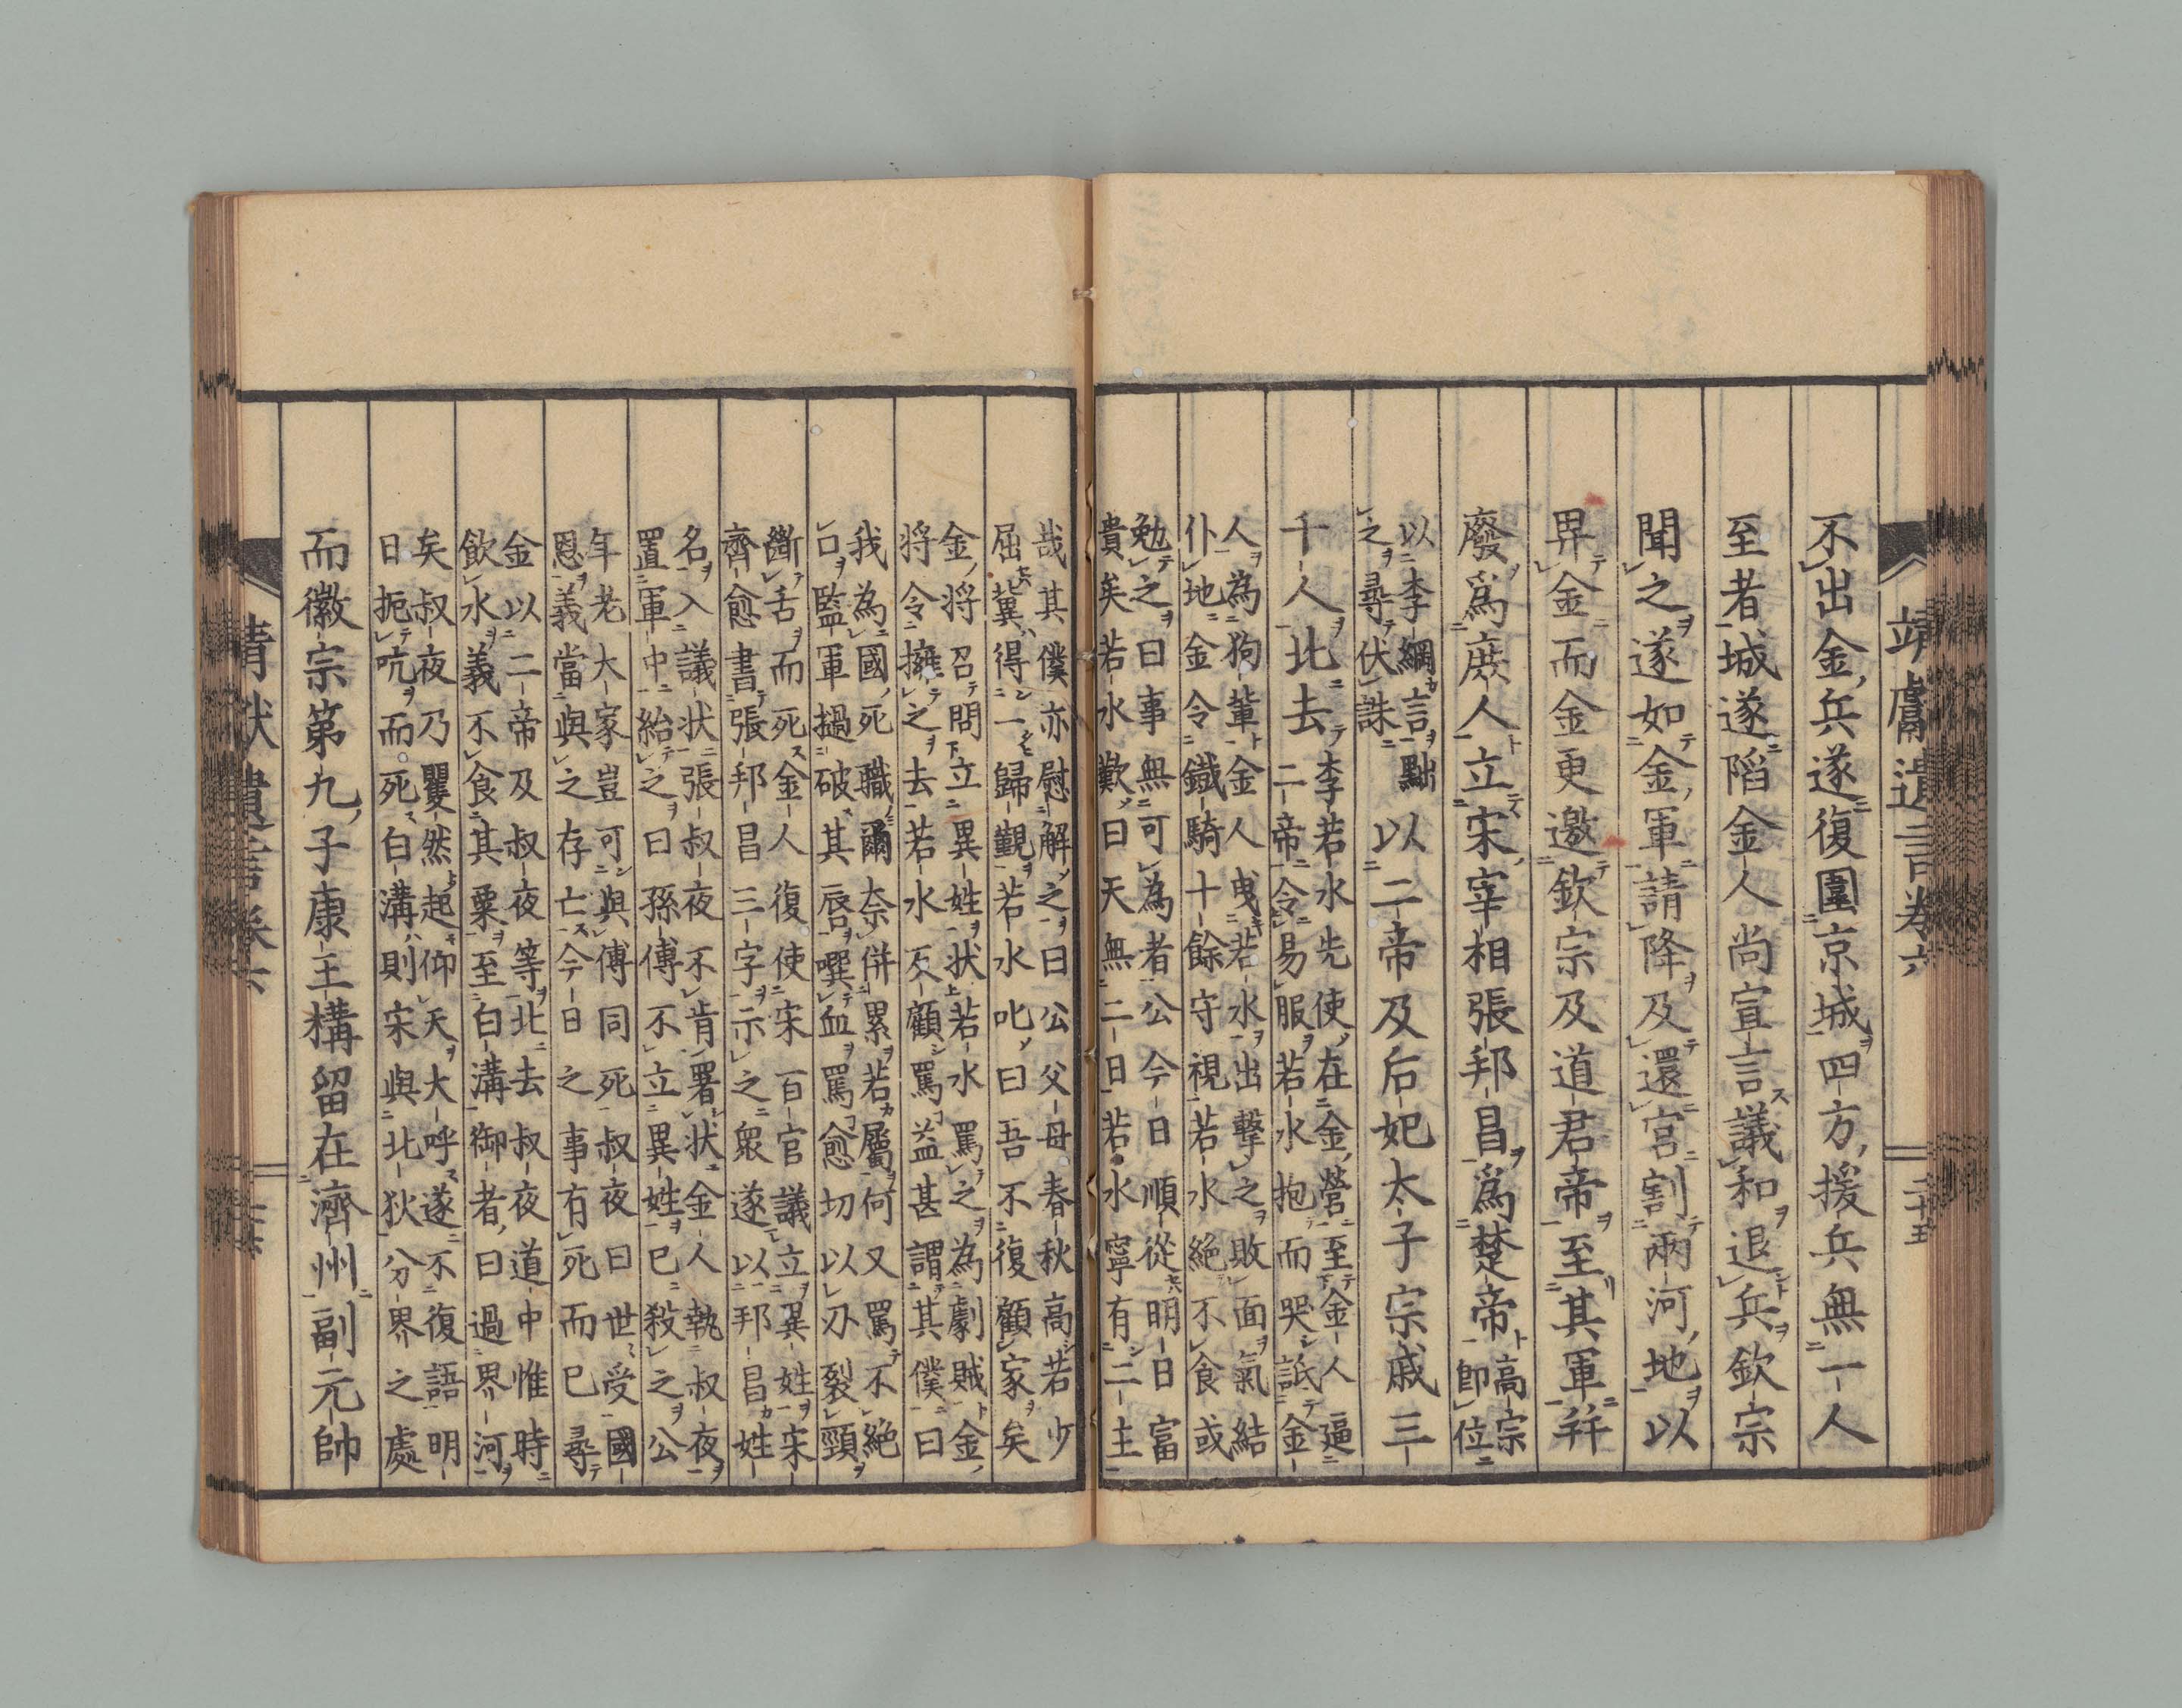 靖獻遺言卷六 二十五
不出金兵遂復圍京城四方援兵無一人
至者城遂陷金人尚宣言議和退兵欽宗
聞之遂如金軍請降及還宮割兩河地以
畀金而金更邀欽宗及道君帝至其軍并
廢爲庶人立宋宰相張邦昌爲楚帝
高宗
即位
以李綱言黜
之尋伏誅
以二帝及后妃太子宗戚三
千人北去
李若水先使在金營至金人逼
二帝令易服若水抱而哭詆金
人為狗輩金人曳若水出擊之敗面氣結
仆地金令鐵騎十餘守視若水絕不食或
勉之曰事無可為者公今日順從明日富
貴矣若水歎曰天無二日若水寧有二主
哉其僕亦慰解之曰公父母春秋高若少
屈冀得一歸覲若水叱曰吾不復顧家矣
金將召問立異姓状若水罵之為劇賊金
將令擁之去若水反顧罵益甚謂其僕曰
我為國死職爾奈併累若屬何又罵不絕
口監軍撾破其唇噀血罵愈切以刃裂頸
斷舌而死金人復使宋百官議立異姓宋
齊愈書張邦昌三字示之眾遂以邦昌姓
名入議状張叔夜不肯署状金人執叔夜
置軍中紿之曰孫傅不立異姓已殺之公
年老大家豈可與傅同死叔夜曰世受國
恩義當與之存亡今日之事有死而已尋
金以二帝及叔夜等北去叔夜道中惟時
飲水義不食其粟至白溝御者曰過界河
矣叔夜乃矍然起仰天大呼遂不復語明
日扼吭而死白溝則宋與北狄分界之處
而徽宗第九子康王構留在濟州副元帥
靖獻遺言卷六